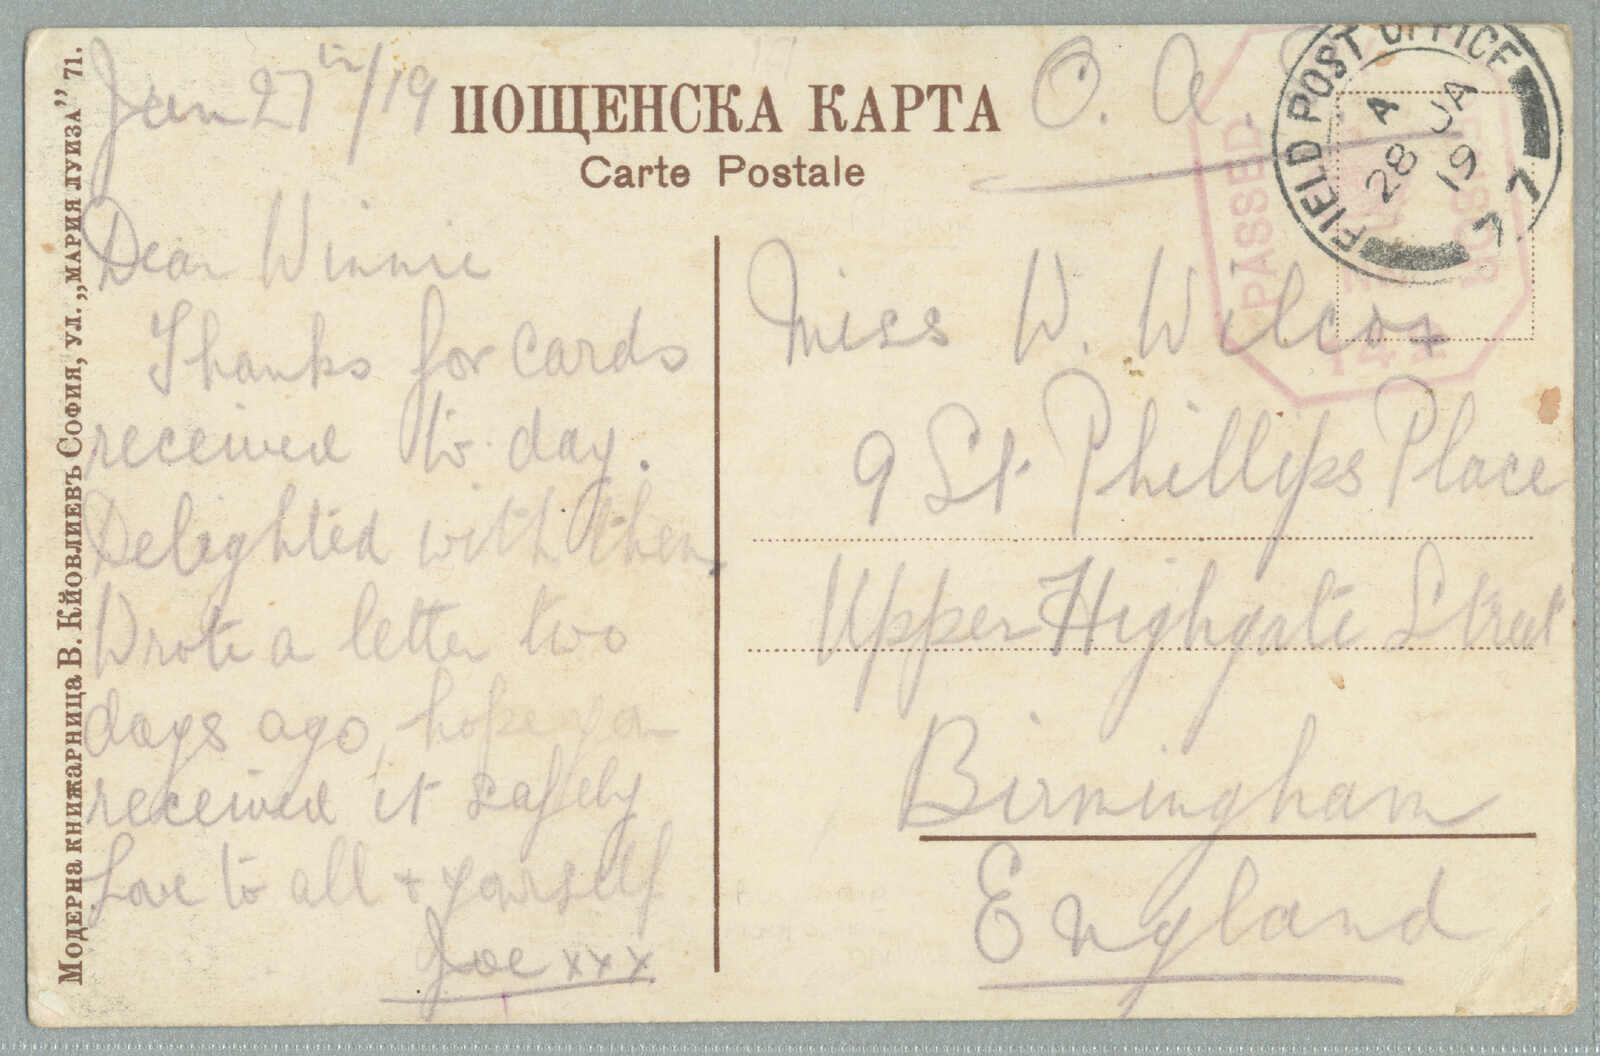 Jan 27th/19
ПОЩЕНСКА КАРТА
Carte Postale
O. A. S
FIELD POST OFFICE
A
28 JA
19
77
PASSED
CENSOR
Dear Winnie
Thanks for cards
received to day.
Delighted with them,
Wrote a letter two
days ago, hope you
received it safely
Love to all + yourself
Joe xxx
Miss W. Wilcox
9 St Phillips Place
Upper Highgate Street
Birmingham
England
Модерна книжарница В. Кйовлиевъ София, ул. „Мария Луиза” 71.